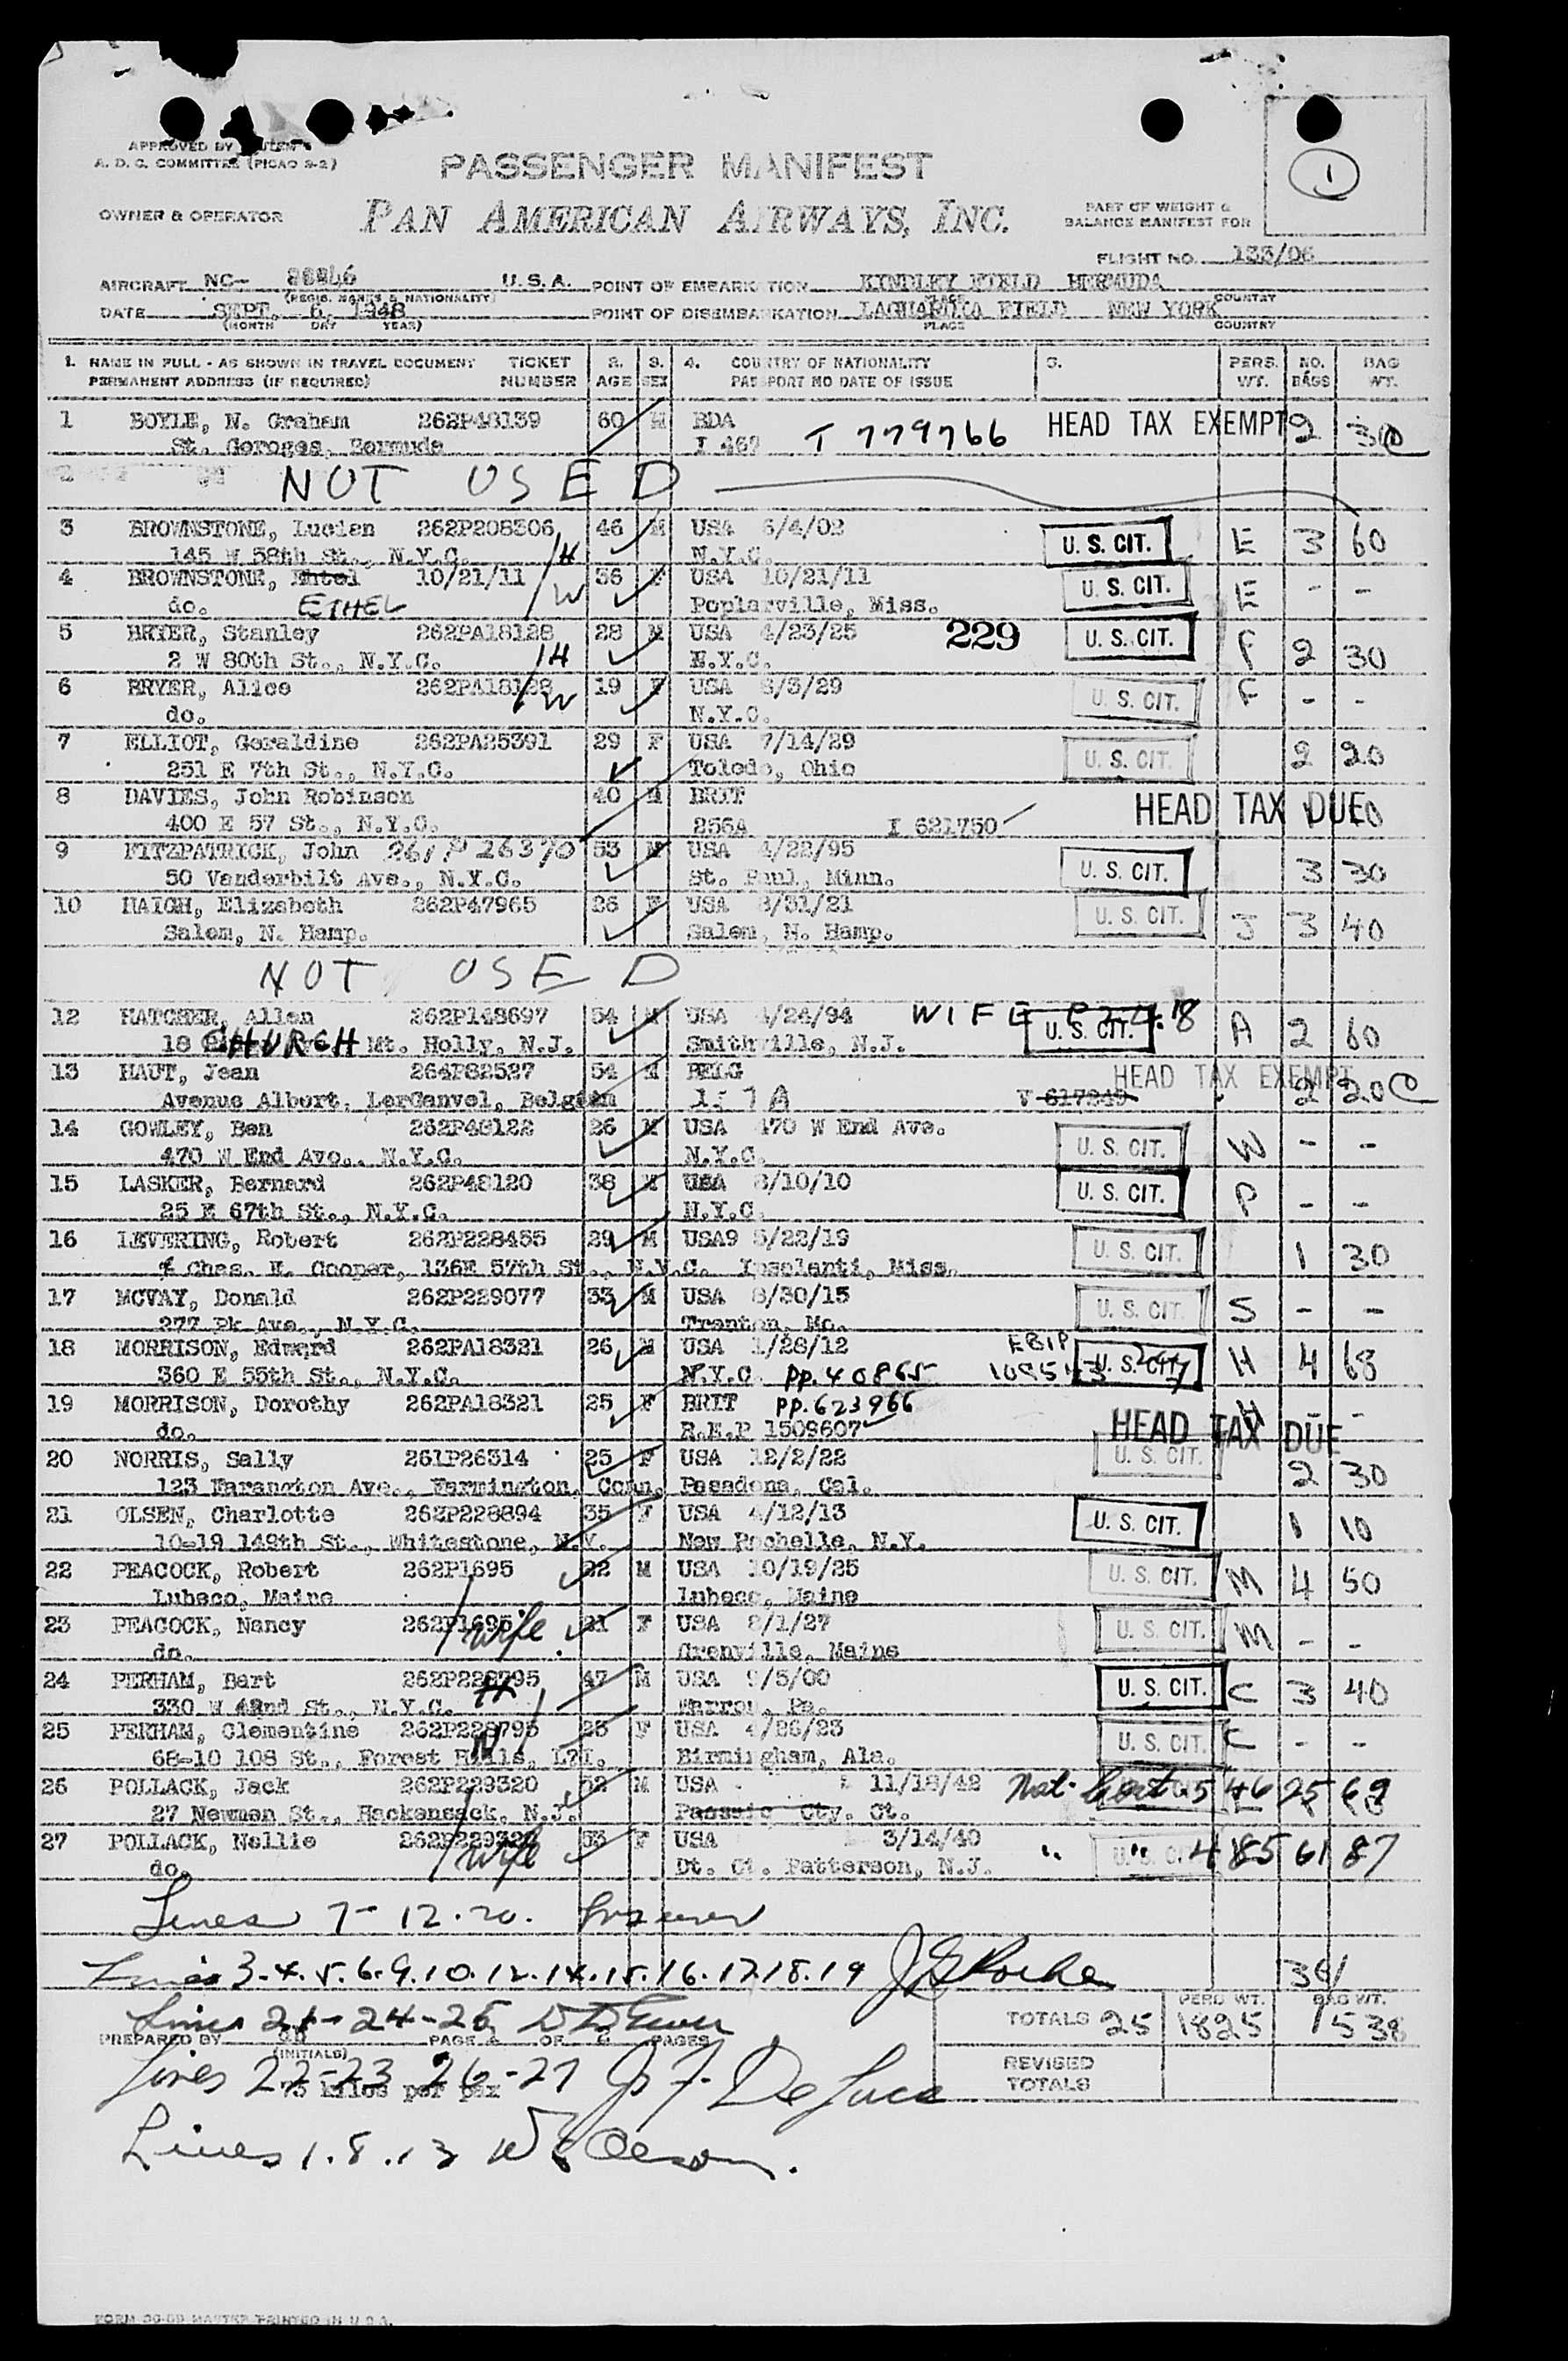 APPROVED BY
A. D. C. COMMITTEE (PICAO 9-2)
PASSENGER MANIFEST
1
OWNER & OPERATOR
PAN AMERICAN AIRWAYS, INC.
PART OF WEIGHT &
BALANCE MANIFEST FOR
FLIGHT NO. 133/06
AIRCRAFT NC- 88846 U.S.A. POINT OF EMBARKATION KINDLEY FIELD BERMUDA
(REGIS. MARKS & NATIONALITY) PLACE COUNTRY
DATE SEPT. 6, 1948 POINT OF DISEMBARKATION LAGUARDIA FIELD NEW YORK
(MONTH DAY YEAR) PLACE COUNTRY
1. NAME IN FULL - AS SHOWN IN TRAVEL DOCUMENT TICKET 2. 3. 4. COUNTRY OF NATIONALITY 5. PERS. NO. BAG
PERMANENT ADDRESS (IF REQUIRED) NUMBER AGE SEX PASSPORT NO DATE OF ISSUE WT. BAGS WT.
1 BOYLE, N. Graham 262P48139 60 M BDA HEAD TAX EXEMPT 2 30
St. Georges, Bermuda I 467 T 779766
2 NOT USED
3 BROWNSTONE, Lucien 262P208306 46 M USA 6/4/02 U. S. CIT. E 3 60
145 W 58th St., N.Y.C. H N.Y.C.
4 BROWNSTONE, Ehtel 10/21/11 36 F USA 10/21/11 U. S. CIT. E - -
do. ETHEL W Poplarville, Miss.
5 BRYER, Stanley 262PA18128 28 M USA 4/23/25 229 U. S. CIT. F 2 30
2 W 80th St., N.Y.C. H N.Y.C.
6 BRYER, Alice 262PA18128 19 F USA 8/3/29 U. S. CIT. F - -
do. W N.Y.C.
7 ELLIOT, Geraldine 262PA25391 29 F USA 7/14/29 U. S. CIT. 2 20
251 E 7th St., N.Y.C. Toledo, Ohio
8 DAVIES, John Robinson 40 M BRIT HEAD TAX DUE
400 E 57 St., N.Y.C. 256A I 621750
9 FITZPATRICK, John 261P26370 53 M USA 4/22/95 U. S. CIT. 3 30
50 Vanderbilt Ave., N.Y.C. St. Paul, Minn.
10 HAIGH, Elizabeth 262P47965 26 F USA 8/31/21 U. S. CIT. J 3 40
Salem, N. Hamp. Salem, N. Hamp.
NOT USED
12 HATCHER, Allen 262P148697 54 M USA 4/24/94 WIFE U. S. CIT. A 2 60
18 CHURCH Mt. Holly, N.J. Smithville, N.J.
13 HAUT, Jean 264P82527 54 M BELG HEAD TAX EXEMPT 2 20
Avenue Albert, LerGanvel, Belgium V 617249
14 GOWLEY, Ben 262P48122 26 M USA 470 W End Ave. U. S. CIT. W - -
470 W End Ave., N.Y.C. N.Y.C.
15 LASKER, Bernard 262P48120 38 M USA 8/10/10 U. S. CIT. P - -
25 E 67th St., N.Y.C. N.Y.C.
16 LEVERING, Robert 262P228455 29 M USA9 5/22/19 U. S. CIT. 1 30
% Chas. H. Cooper, 136E 57th St., N.Y.C. Ypsolanti, Miss.
17 MCVAY, Donald 262P229077 33 M USA 8/30/15 U. S. CIT. S - -
277 Pk Ave., N.Y.C. Trenton, Mo.
18 MORRISON, Edward 262PA18321 26 M USA 1/28/12 U. S. CIT. H 4 68
360 E 55th St., N.Y.C. N.Y.C. pp. 40865
19 MORRISON, Dorothy 262PA18321 25 F BRIT pp. 623966 H - -
do. R.E.P 1509607 HEAD TAX DUE
20 NORRIS, Sally 261P26314 25 F USA 12/2/22 U. S. CIT. 2 30
123 Farangton Ave., Farmington, Conn. Pasadena, Cal.
21 OLSEN, Charlotte 262P228894 35 F USA 4/12/13 U. S. CIT. 1 10
10-19 149th St., Whitestone, N.Y. New Rochelle, N.Y.
22 PEACOCK, Robert 262P1695 22 M USA 10/19/25 U. S. CIT. M 4 50
Lubeco, Maine Lubeco, Maine
23 PEACOCK, Nancy 262P1695 wife 21 F USA 8/1/27 U. S. CIT. M - -
do. Grenville, Maine
24 PERHAM, Bart 262P228795 47 M USA 9/5/00 U. S. CIT. C 3 40
330 W 42nd St., N.Y.C. H Warren, Pa.
25 PERHAM, Clementine 262P228795 25 F USA 4/26/23 U. S. CIT. C - -
68-10 108 St., Forest Hills, L?I. W Birmingham, Ala.
26 POLLACK, Jack 262P229320 52 M USA 11/18/42 Nat. Cert. 5462569
27 Newman St., Hackensack, N.J. Passaic Cty. Ct.
27 POLLACK, Nellie 262P229320 wife 53 F USA 3/14/40 " " U. S. CIT. 4856187
do. Dt. Ct. Patterson, N.J.
Lines 7-12.20.
Lines 3.4.5.6.9.10.12.14.15.16.17.18.19 J G Roche 34
Lines 21-24-25
TOTALS 25 PERS. WT. 1825 BAG WT. 1538
PREPARED BY PAGE OF PAGES
(INITIALS)
Lines 22-23 26-27 J. F. De Luca
75 kilos per pax
REVISED
TOTALS
Lines 1.8.13 W E Olesom.